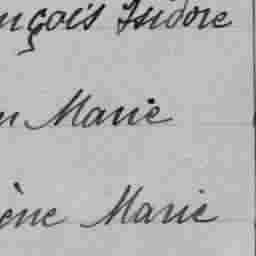 nçois Isidore
n Marie
ène Marie